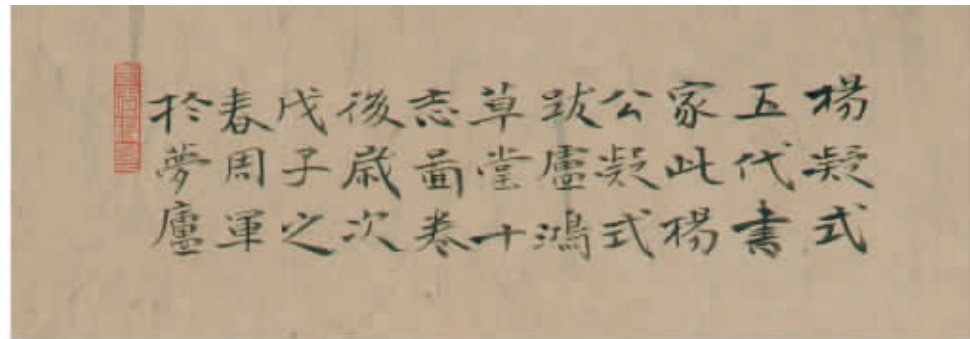 楊凝式
五代書
家此楊
公凝式
跋盧鴻
草堂十
志啚卷
後嵗次
戊子之
春周軍
於夢廬